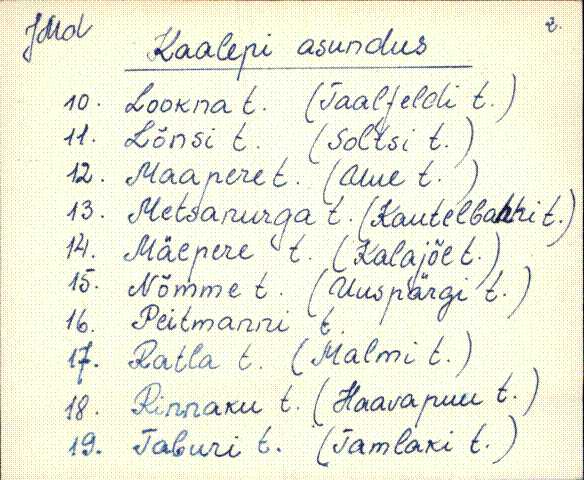 JMd
2.
Kaalepi asundus
10. Lookna t. (Taalfeldi t.)
11. Lõnsi t. (Soltsi t.)
12. Maapere t. (Uue t.)
13. Metsanurga t. (Kautelbahhi t.)
14. Mäepere t. (Kalajõe t.)
15. Nõmme t. (Uuspärgi t.)
16. Peitmanni t.
17. Ratla t. (Malmi t.)
18. Rinnaku t. (Haavapuu t.)
19. Taburi t. (Tamlaki t.)